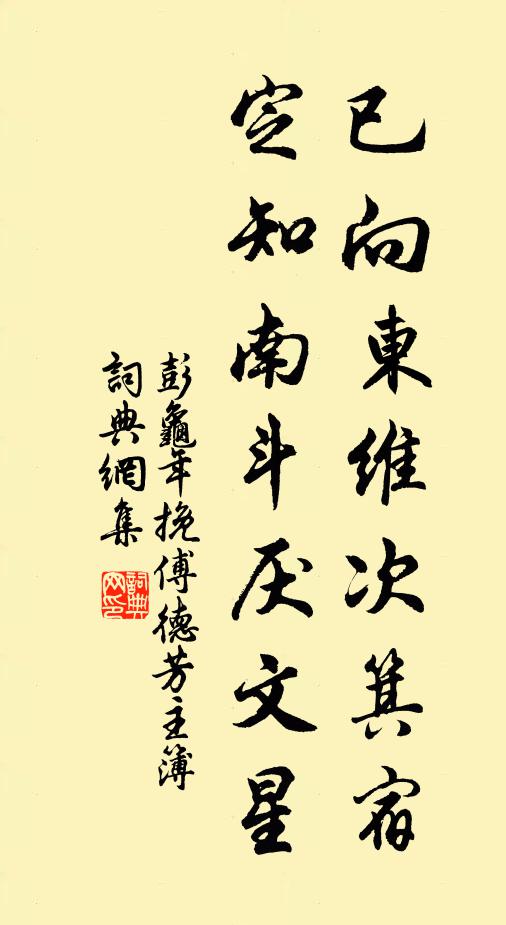 已向東維次箕宿
定知南斗厌文星
彭龜年挽傅德芳主簿
詞典網集
詞典网印